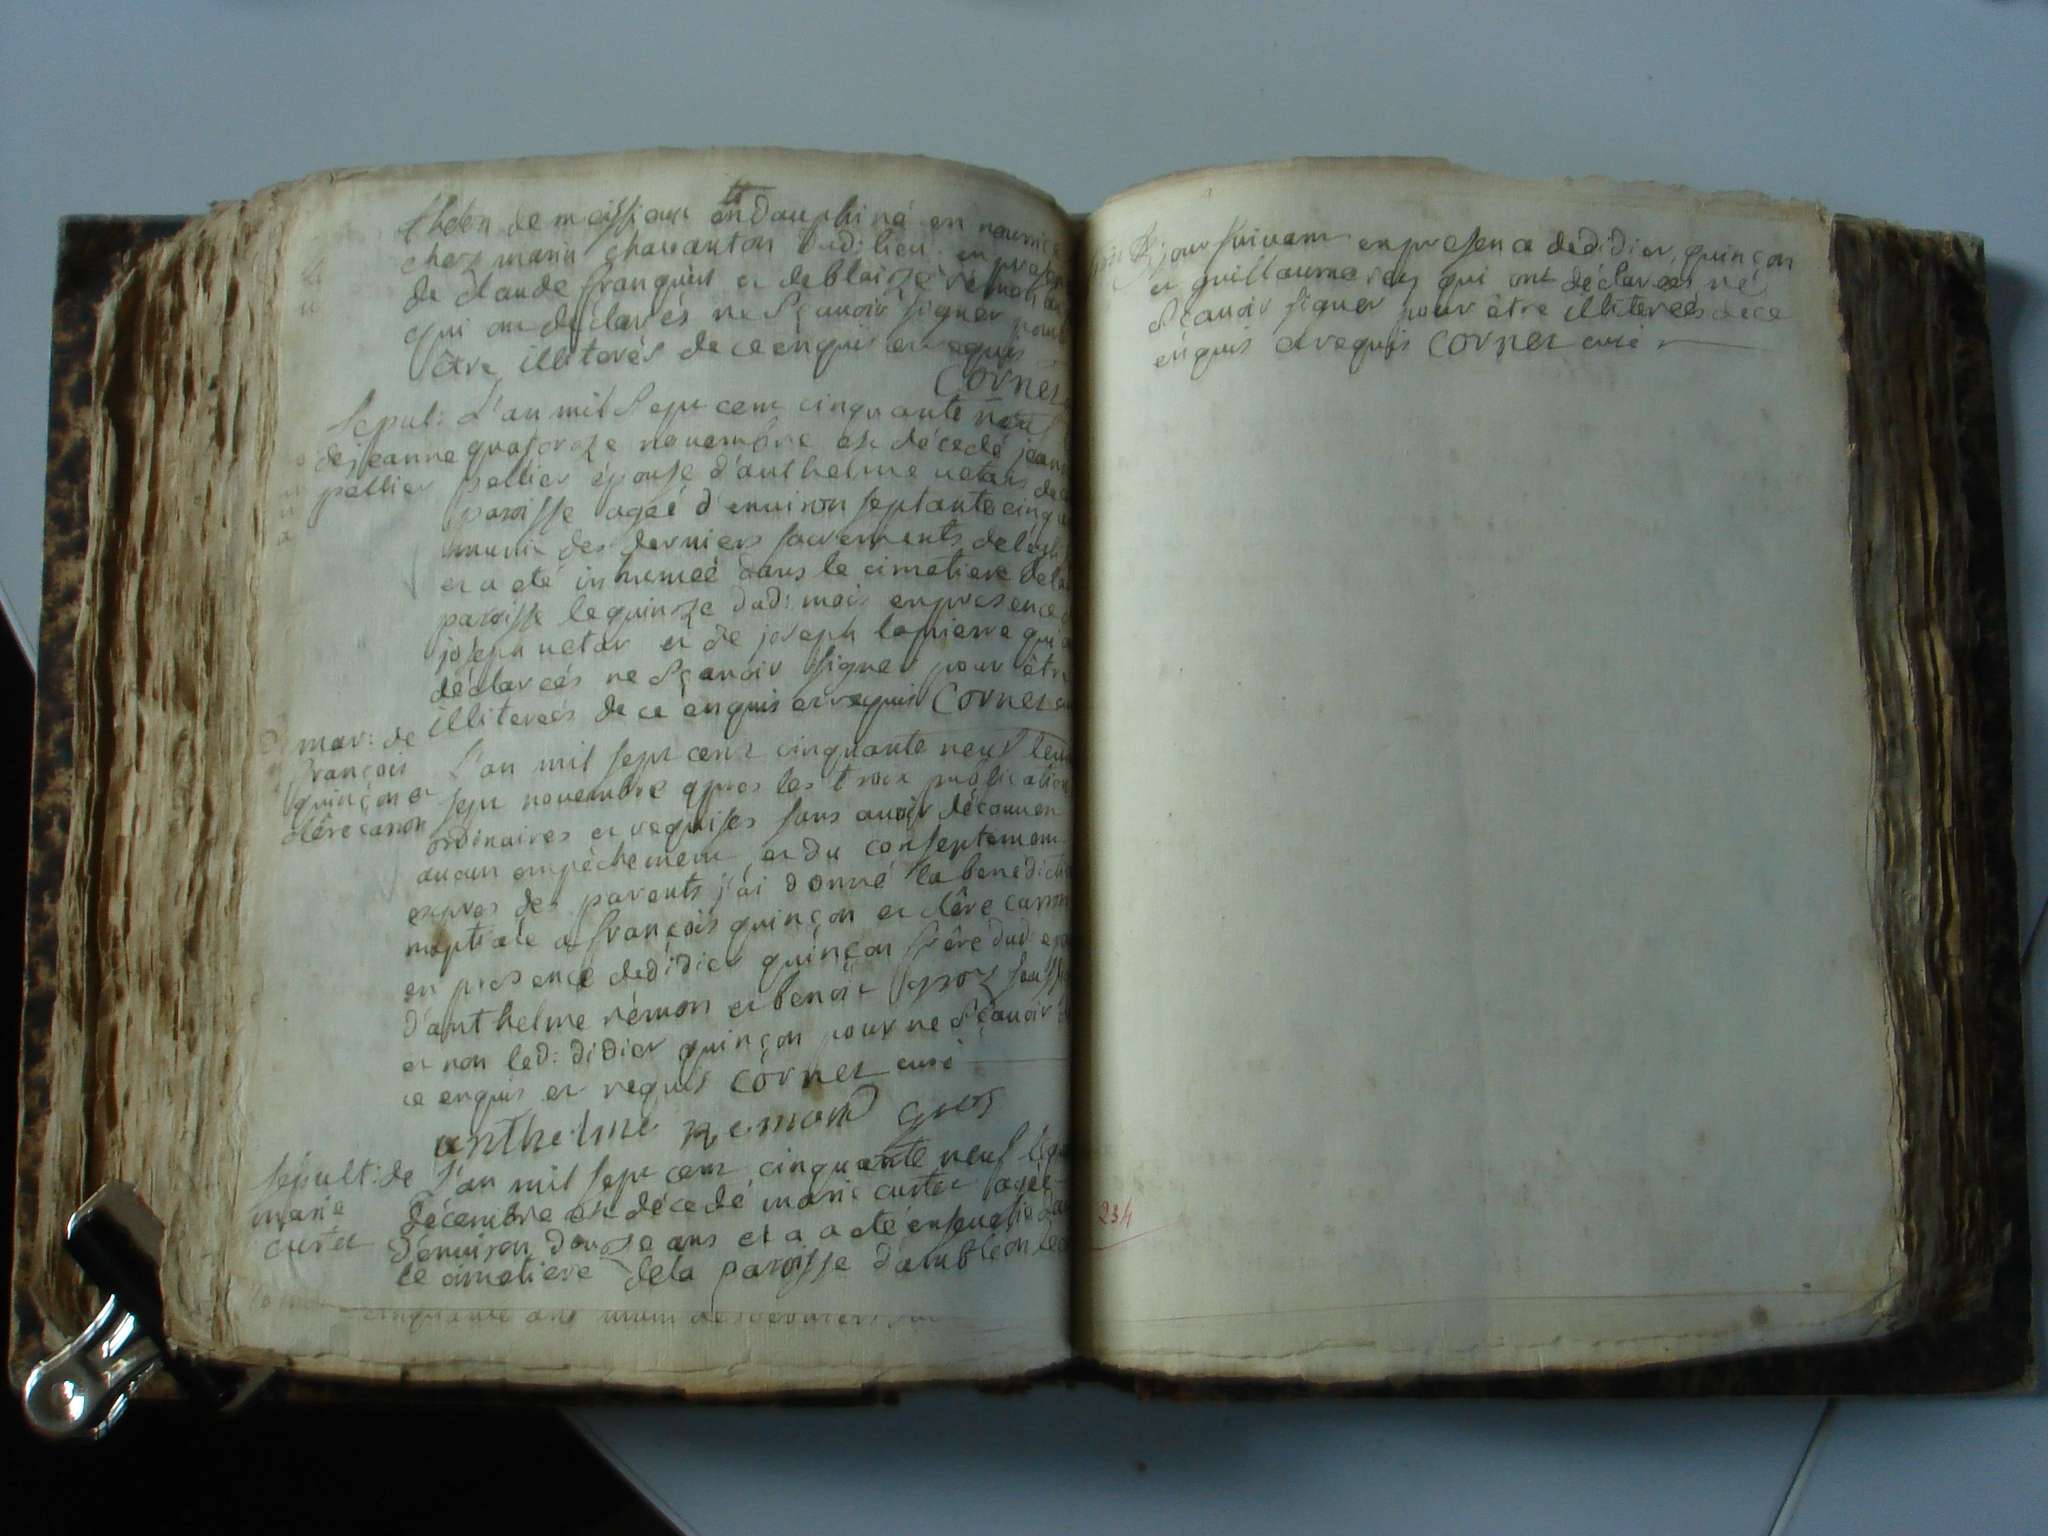 de moissieux en dauphiné en nourrice
chez marie chavanton dud: lieu en presen
de claude franquet et de blaise rémon
qui ont déclarés ne sçavoir signer pour
être illiterés de ce enquis et requis
Cornet
Sepul: L'an mil sept cent cinquante neuf
de jeanne quatorze novembre est décedé jeann
pellier pellier épouse d'anthelme uetar de
paroisse agée d'environ septante cinq
munie des derniers sacrements de l'egli
et a eté inhumeé dans le cimetiere de la
paroisse le quinze dud: mois en presence
joseph uetar et de joseph lapierre qui
déclareés ne sçavoir signer pour être
illitereés de ce enquis et requis Cornet cu
mar: de
françois L'an mil sept cent cinquante neuf
quinçon et sept novembre apres les troix publication
clére caron ordinaires et requises sans avoir découver
aucun empêchement et du conseptement
expres des parents j'ai donné la benedictio
nuptiale a françois quinçon et clére caron
en presence de didier quinçon frêre dud: epo
d'anthelme rémon et benoit gros sousig
et non led: didier quinçon pour ne sçavoir
ce enquis et requis Cornet curé
anthelme Remond gros
Sépult: de L'an mil sept cent cinquante neuf le
marie décembre est décedé marie curtet agée
curtet d'environ douze ans et a a eté ensevelie dan
le cimetiere de la paroisse d'ambleon le
cinquante ans muni des derniers
jour suivant en presence de didier quinçon
et guillaume rey qui ont déclareés né
sçavoir signer pour être illitereés de ce
enquis et requis Cornet curé
234